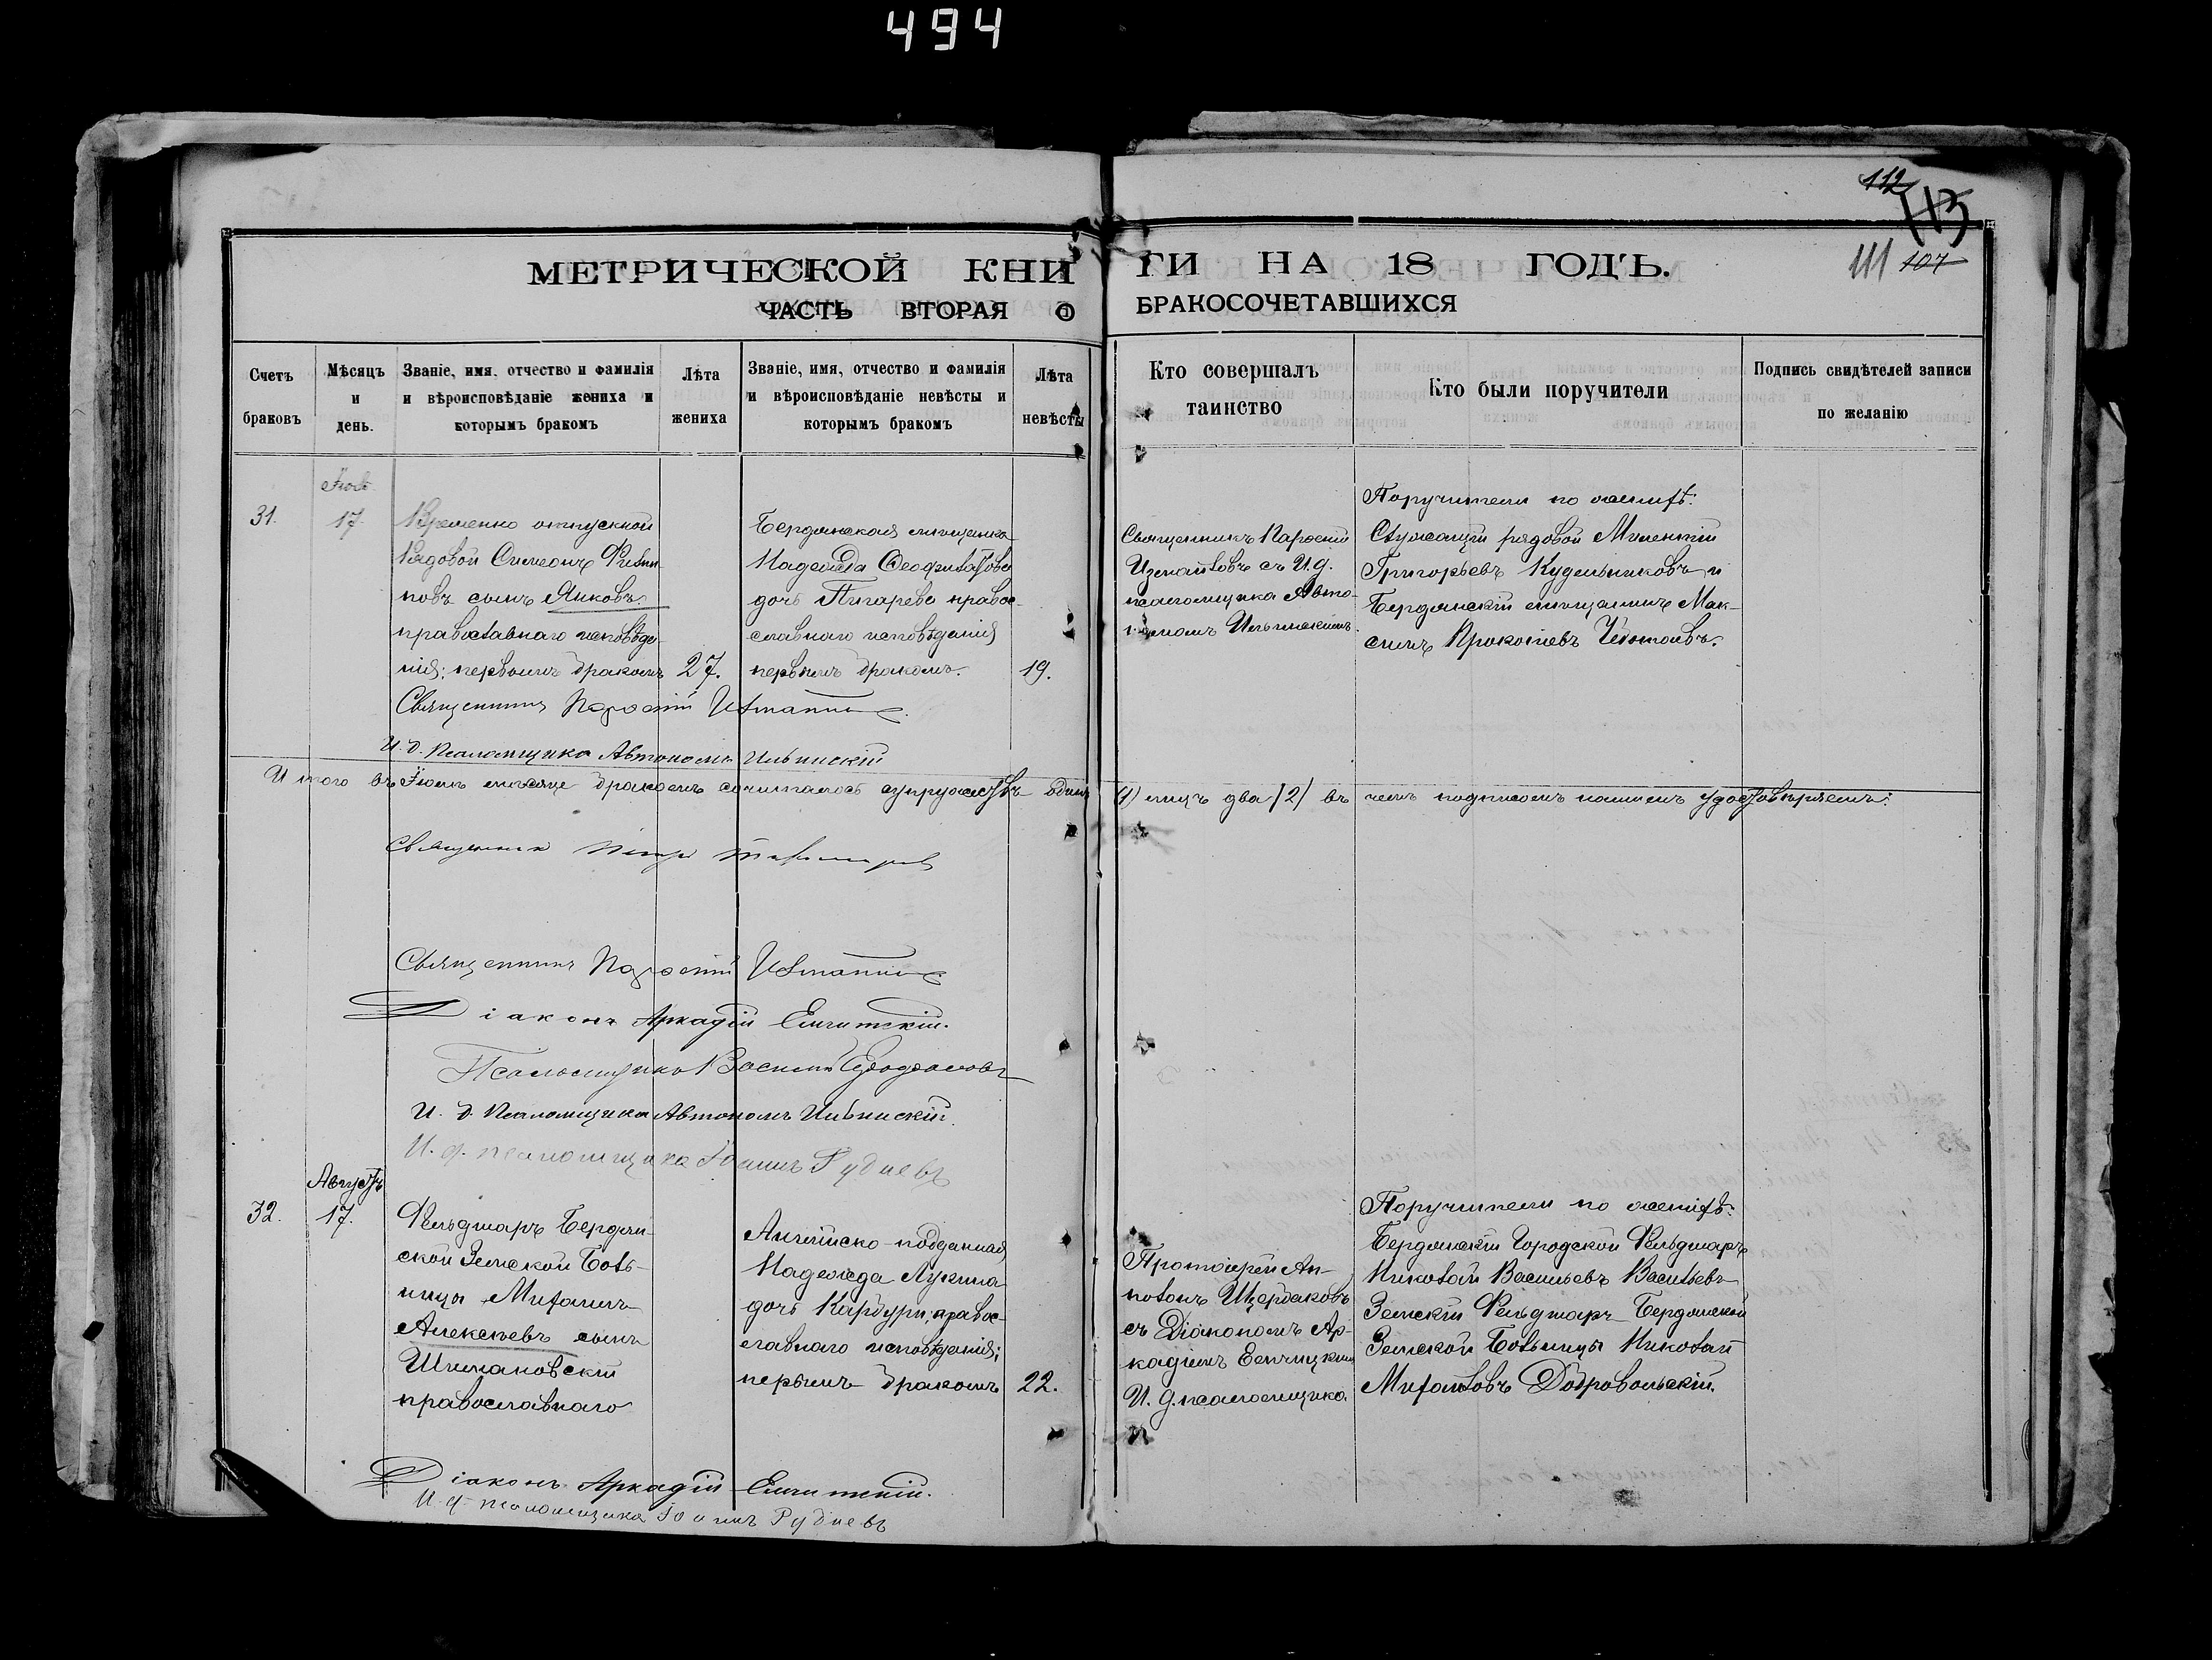 494
112
113
111 107
МЕТРИЧЕСКОЙ КНИ
ГИ НА 18 ГОДЪ.
ЧАСТЬ ВТОРАЯ О
БРАКОСОЧЕТАВШИХСЯ
Счетъ
браковъ
Мѣсяцъ
и
день.
Званіе, имя, отчество и фамилія
и вѣроисповѣданіе жениха и
которымъ бракомъ
Лѣта
жениха
Званіе, имя, отчество и фамилія
и вѣроисповѣданіе невѣсты и
которымъ бракомъ
Лѣта
невѣсты
Кто совершалъ
таинство
Кто были поручители
Подпись свидѣтелей записи
по желанію
31.
17.
Временно отпускной
Рядовой Симеонъ Филип
повъ сынъ Яиковъ.
православнаго исповѣда
нія; первымъ бракомъ
27.
Бердянская мѣщанка
Надежда Феофилатова
дочь Писарева правос-
славнаго исповѣданія
первымъ бракомъ.
19.
Священникъ
съ И. д.
псаломщика Авто-
номомъ Ильинскимъ
Поручители по женихѣ:
Служащій рядовой
Григорьевъ Кудельниковъ и
Бердянскій мѣщанинъ Мак-
симъ Прокопіевъ
Священникъ
И. д. Псаломщика Автономъ Ильинскій
Итого въ Іюлѣ мѣсяце бракомъ сочиталось супружествъ одинъ
(1) лицъ два (2) въ чемъ подписомъ нашимъ удостовѣряемъ:
Священникъ Петръ
Священникъ
Діаконъ Аркадій
Псаломщикъ Василій
И. д. Псаломщика Автономъ Ильинскій.
И. д. псаломщика Іоаннъ Рудневъ
Августъ
32.
17.
Фельдшаръ Бердян-
ской Земской Боль-
ницы Михаилъ
Алексѣевъ сынъ
Шимановскій
православнаго
Англійско-подданная
Надежда Лукина
дочь Карбури; правос-
славнаго исповѣданія;
первымъ бракомъ
22.
Протоіерей Ап-
полонъ Щербаковъ
съ Діакономъ Ар-
кадіемъ
И. д. псаломщика
Поручители по женихѣ:
Бердянскій Городской Фельдшаръ
Николай Васильевъ Васильевъ
Земскій Фельдшаръ Бердянской
Земской Больницы Николай
Михайловъ Добровольскій.
Діаконъ Аркадій
И. д. псаломщика Іоаннъ Рудневъ